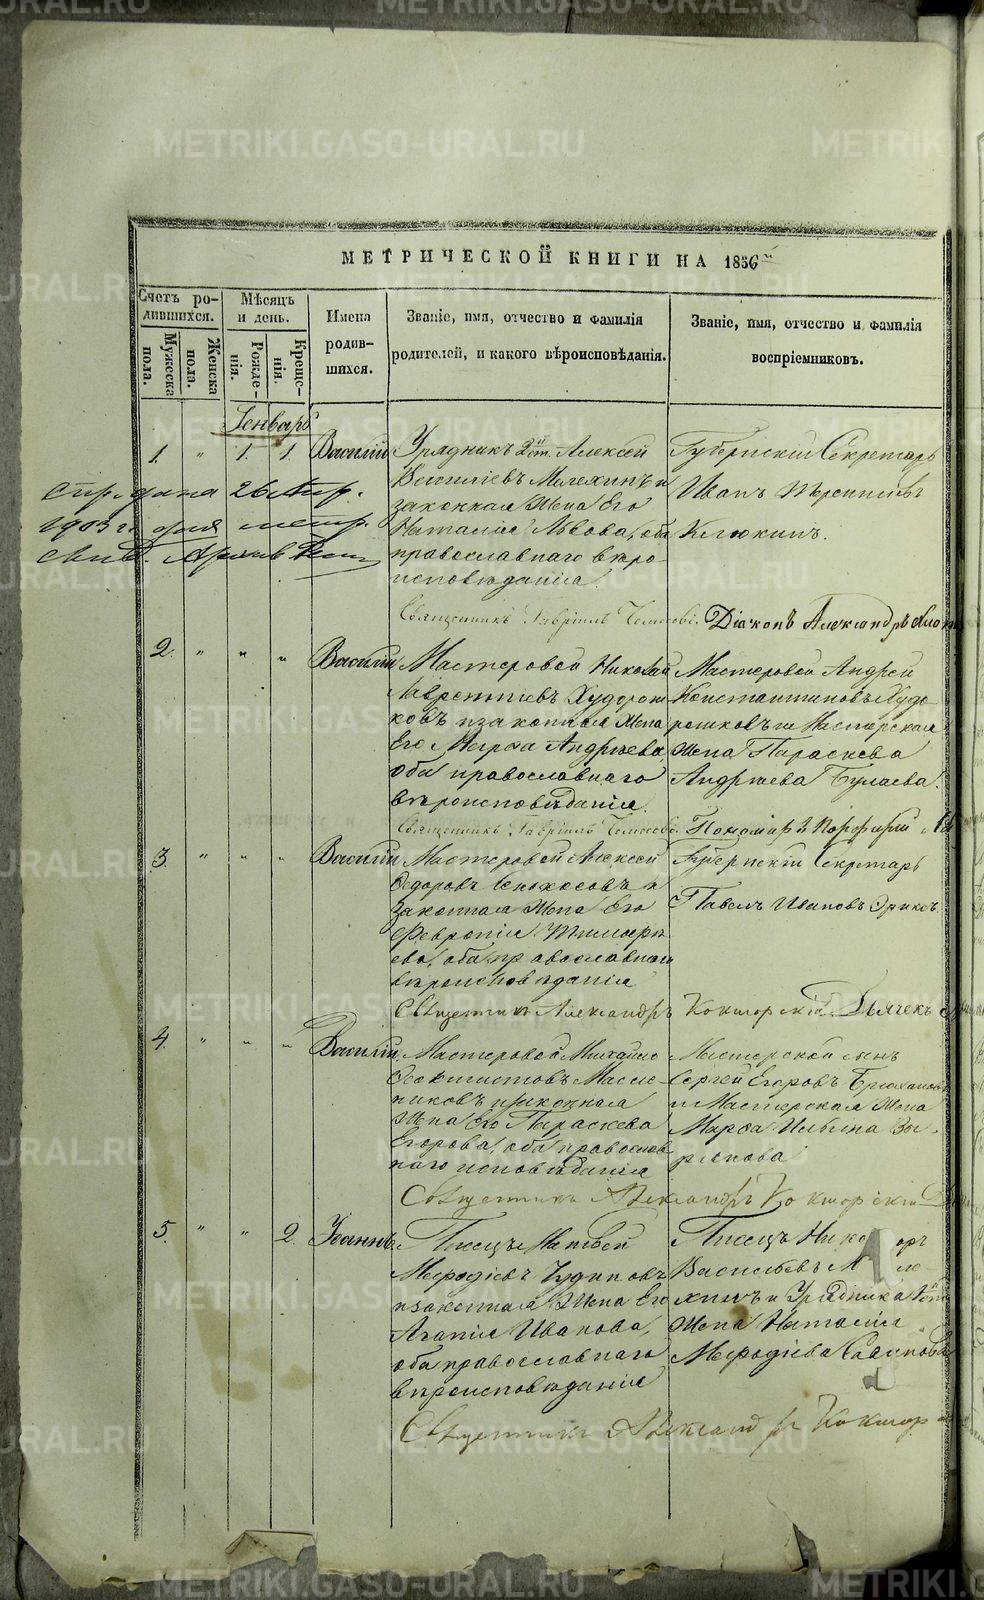 МЕТРИЧЕСКОЙ КНИГИ НА 1856й
Счетъ родившихся.
Мужеска пола.
Женска пола.
Мѣсяцъ и день.
Рожденія.
Крещенія.
Имена родившихся.
Званіе, имя, отчество и фамилія родителей, и какого вѣроисповѣданія.
Званіе, имя, отчество и фамилія воспріемниковъ.
Генварь
1. " 1. 1. Василій
Урядникъ 2й ст. Алексей
Васильевъ Мелехинъ и
законная Жена Его
Наталія Львова, оба
православнаго вѣро-
исповѣданія.
Губернскій Секретарь
Иванъ
26 Апр.
1903 г. для метр.
Священникъ Гавріилъ
Діаконъ Александръ
2. " " " Василій
Мастеровой Николай
Лаврентіевъ Худорож
ковъ и законная Жена
Его Марфа Андрѣева,
оба православнаго
вѣроисповѣданія.
Мастеровой Андрей
Константиновъ Худо
рожковъ и Мастерская
Жена Параскева
Андрѣева
Священникъ Гавріилъ
Пономарь Порфирій
3. " " " Василій
Мастеровой Алексей
Федоровъ Сенокосовъ и
законная Жена Его
Феврония
ева, оба православнаго
вѣроисповѣданія
Губернскій Секретарь
Павелъ Ивановъ
Священникъ Александръ Кокшарскій. Дьячекъ
4. " " " Василій
Мастеровой Михайло
Феоктистовъ Масле-
никовъ и законная
Жена Его Параскева
Егорова, оба православ
наго исповѣданія
Мастерской сынъ
Сергей Егоровъ Брюханов
и Мастерская Жена
Марфа Ильина Зы-
рянова
Священникъ Александръ Кокшарскій
5. " " 2. Іоаннъ.
Писецъ Матвей
Мефодіевъ Чудиновъ
и законная Жена Его
Агапія Иванова,
оба православнаго
вѣроисповѣданія
Писецъ
Васильевъ
и Урядника
Жена Наталія
Мефодіева
Священникъ Александръ Кокшар
METRIKI.GASO-URAL.RU